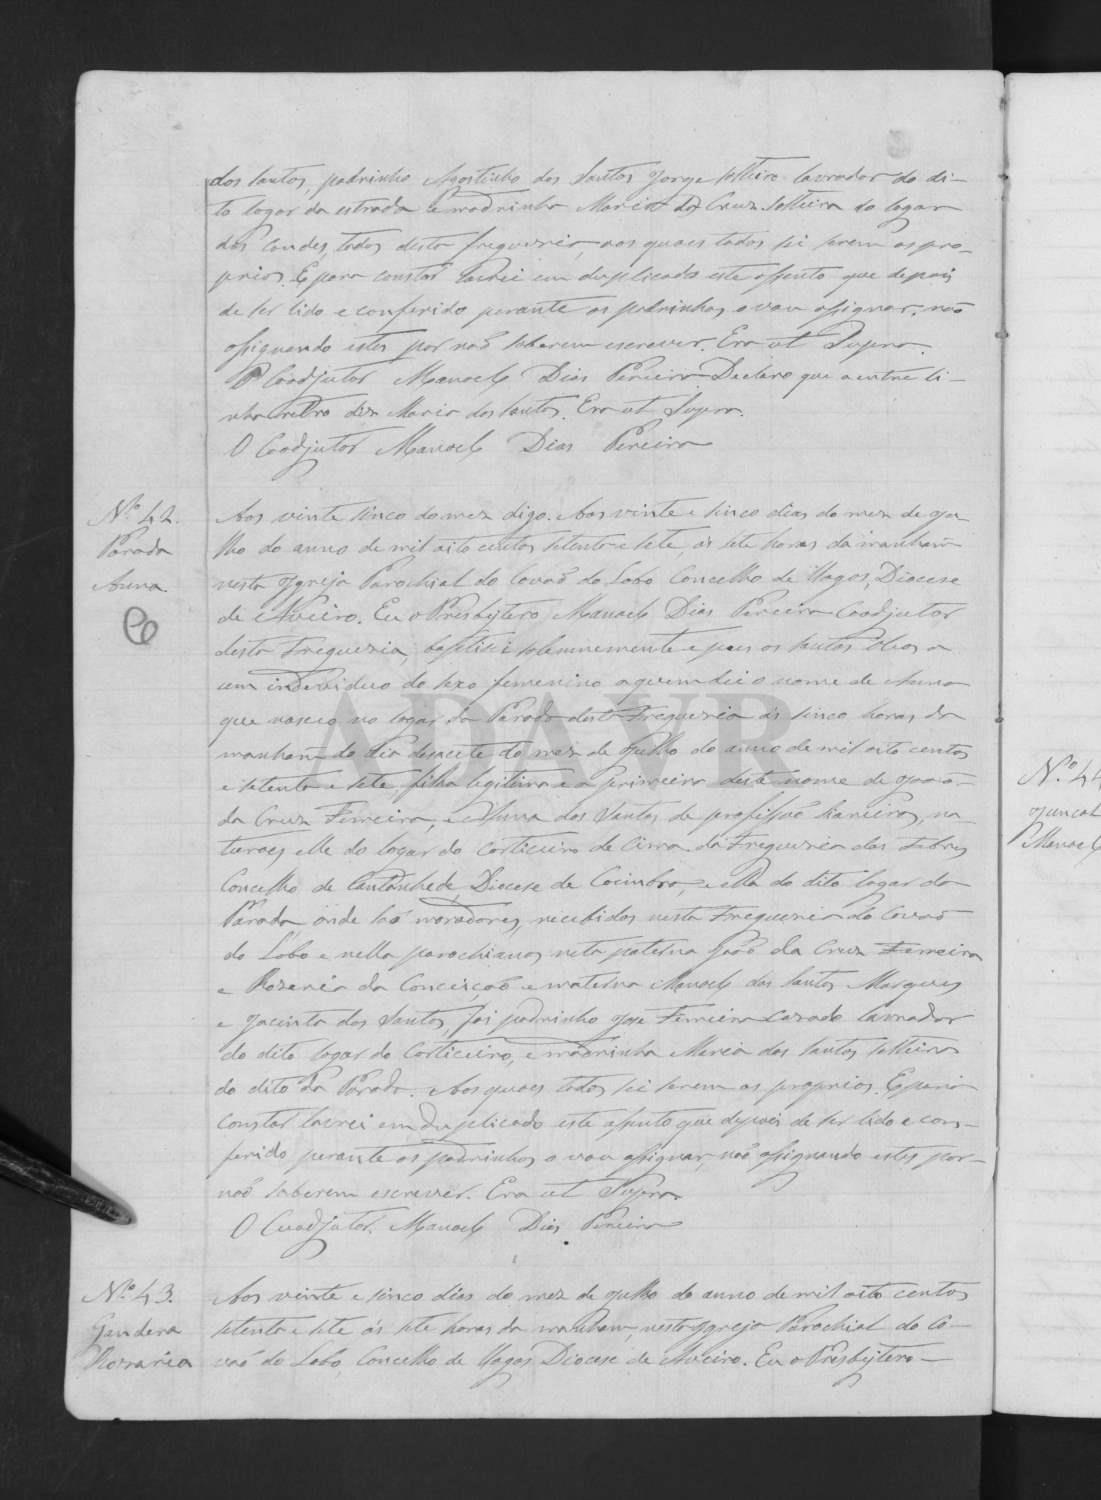 dos Santos, padrinho Agostinho dos Santos Jorge solteiro lavrador do di-
to logar da estrada e madrinha Maria da Cruz solteira do logar
dos Condes, todos desta freguezia, aos quaes todos sei serem os pro-
prios. E para constar lavrei em duplicado este assento que depois
de ser lido e conferido perante os padrinhos o vou assignar, não
assignando estes por não saberem escrever. Era ut Supra.
O Coadjutor Manoel Dias Pereira Declaro que a entre li-
nha retro diz Maria dos Santos. Era ut Supra.
O Coadjutor Manoel Dias Pereira
Nº 42.
Parada
Anna
Aos vinte sinco do mez digo. Aos vinte e sinco dias do mez de Ju-
lho do anno de mil oito centos setenta e sete, ás sete horas da manham
nesta Igreja Parochial do Covão do Lobo Concelho de Vagos, Diocese
de Aveiro. Eu o Presbytero Manoel Dias Pereira Coadjutor
desta Freguezia, baptisei solemnemente e pus os Santos Oleos a
um individuo do sexo femenino a quem dei o nome de Anna
que nasceu no logar da Parada desta Freguezia ás sinco horas da
manham do dia desacete do mez de Julho do anno de mil oito centos
e setenta e sete, filha legitima e a primeira deste nome de João
da Cruz Ferreira, e Anna dos Santos de profissão
naturaes elle do logar do Corticeiro de Cima da Freguezia das Febres
Concelho de Cantanhede, Diocese de Coimbra, e ella do dito logar da
Parada, onde são moradores, recebidos nesta Freguezia do Covão
do Lobo e nella parochianos neta paterna João da Cruz Ferreira
e Rozaria da Conceição e materna Manoel dos Santos Marques
e Jacinta dos Santos, foi padrinho José Ferreira casado lavrador
do dito logar do Corticeiro, e madrinha Maria dos Santos solteira
do dito da Parada. Aos quaes todos sei serem os proprios. E para
constar lavrei em duplicado este assento que depois de ser lido e con-
ferido perante os padrinhos o vou assignar, não assignando estes por
não saberem escrever. Era ut Supra.
O Cuadjutor. Manoel Dias Pereira
Nº 43.
Gandera
Rozaria
Aos vinte e sinco dias do mez de Julho do anno de mil oito centos
setenta e sete ás sete horas da manham, nesta Igreja Parochial do Co-
vão do Lobo, Concelho de Vagos Diocese de Aveiro. Eu o Presbytero
Nº 44
Juncal
Manoel
ADAVR